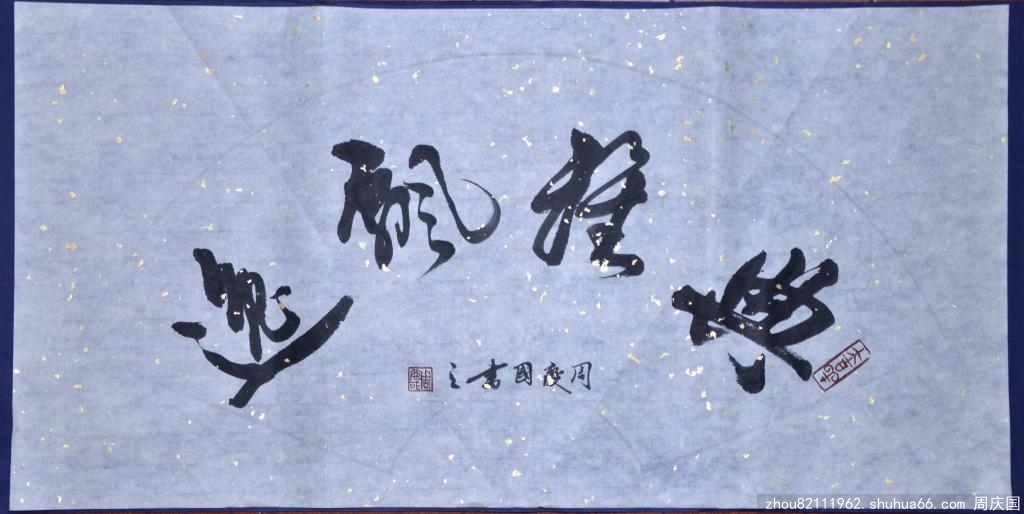 典雅飄逸
周慶國書之
zhou82111962.shuhua66.com 周庆国